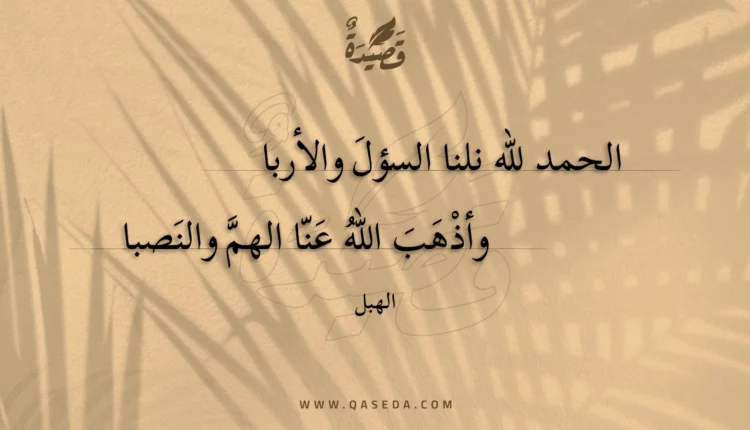 قَصِيْدَةٌ
الحمد لله نلنا السؤلَ والأربا
وأذْهَبَ اللهُ عَنّا الهمَّ والنَصبا
الهبل
WWW.QASEDA.COM